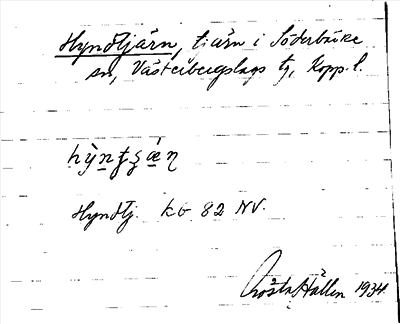 Hyndtjärn, tjärn i Söderbärke
sn, Västerbergslags tg, Kopp. l.
Hyndtj. kb 82 NV.
Gösta Hällen 1934.